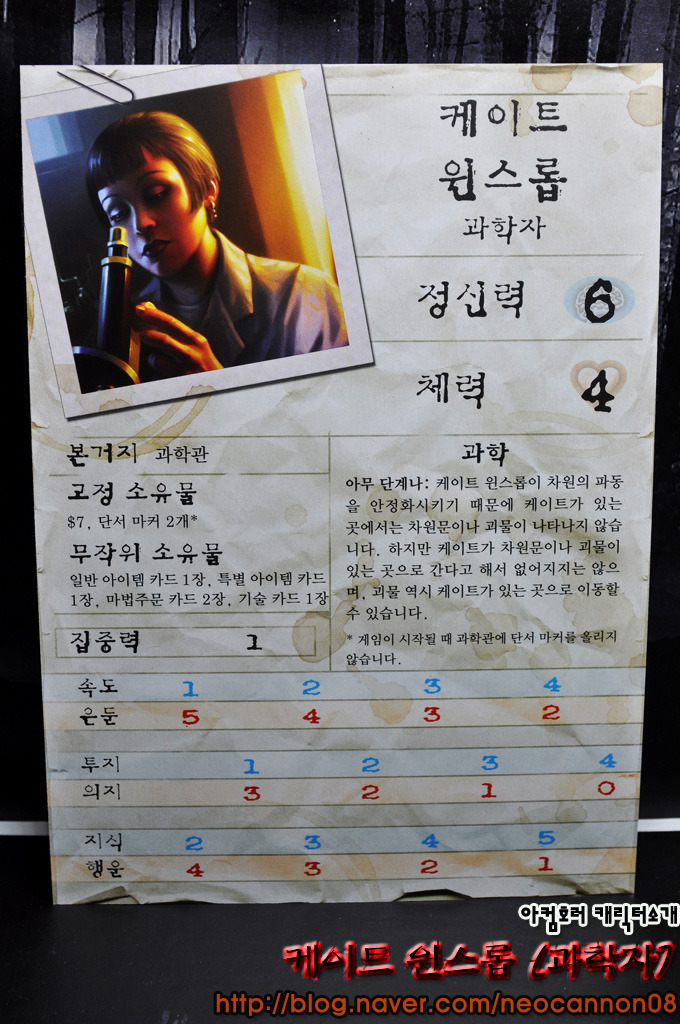 케이트
윈스롭
과학자
정신력 6
체력 4
본거지 과학관
고정 소유물
$7, 단서 마커 2개*
무작위 소유물
일반 아이템 카드 1장, 특별 아이템 카드
1장, 마법주문 카드 2장, 기술 카드 1장
집중력 1
과학
아무 단계나: 케이트 윈스롭이 차원의 파동
을 안정화시키기 때문에 케이트가 있는
곳에서는 차원문이나 괴물이 나타나지 않습
니다. 하지만 케이트가 차원문이나 괴물이
있는 곳으로 간다고 해서 없어지지는 않으
며, 괴물 역시 케이트가 있는 곳으로 이동할
수 있습니다.
* 게임이 시작될 때 과학관에 단서 마커를 올리지
않습니다.
속도 1 2 3 4
은둔 5 4 3 2
투지 1 2 3 4
의지 3 2 1 0
지식 2 3 4 5
행운 4 3 2 1
아컴호러 캐릭터소개
케이트 윈스롭 (과학자)
http://blog.naver.com/neocannon08